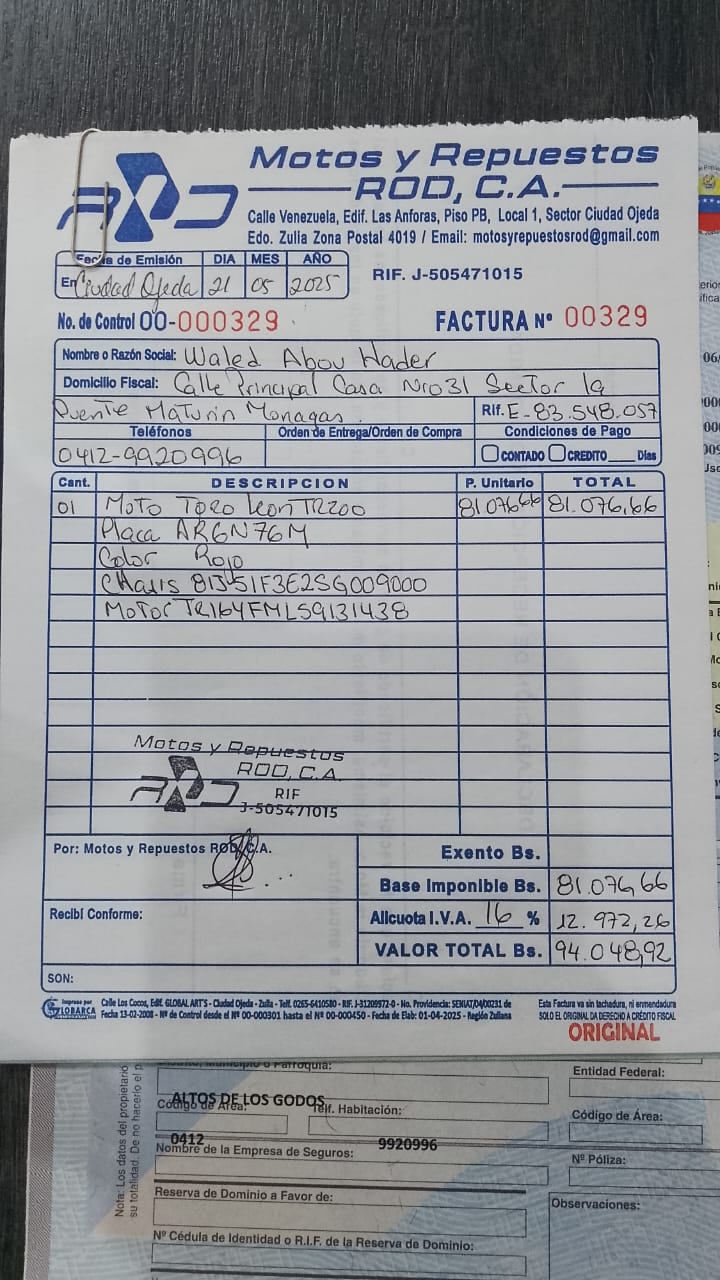 Motos y Repuestos
ROD, C.A.
Calle Venezuela, Edif. Las Anforas, Piso PB, Local 1, Sector Ciudad Ojeda
Edo. Zulia Zona Postal 4019 / Email: motosyrepuestosrod@gmail.com
Fecha de Emisión DIA MES AÑO
En Ciudad Ojeda 21 05 2025
RIF. J-505471015
No. de Control 00-000329
FACTURA Nº 00329
Nombre o Razón Social: Waled Abou Hader
Domicilio Fiscal: Calle Principal Casa Nro 31 Sector la
Puente Maturin Monagas. Rif. E-83.548.057
Teléfonos Orden de Entrega/Orden de Compra Condiciones de Pago
0412-9920996 CONTADO CREDITO____ Días
Cant. DESCRIPCION P. Unitario TOTAL
01 Moto Toro Leon TR200 81.076,66 81.076,66
Placa AR6N76M
Color Rojo
CHasis 81J51F3E2SG009000
MOTOR TR164FMLS9131438
Motos y Repuestos
ROD, C.A.
RIF
J-505471015
Por: Motos y Repuestos ROD, C.A.
Exento Bs.
Base Imponible Bs. 81.076,66
Recibí Conforme:
Alicuota I.V.A. 16 % 12.972,26
VALOR TOTAL Bs. 94.048,92
SON:
Impreso por
GLOBARCA
Calle Los Cocos, Edif. GLOBAL ART'S - Ciudad Ojeda - Zulia - Telf. 0265-6410580 - RIF. J-31209972-0 - No. Providencia: SENIAT/04/00231 de
Fecha 13-02-2008 - Nº de Control desde el Nº 00-000301 hasta el Nº 00-000450 - Fecha de Elab: 01-04-2025 - Región Zuliana
Esta Factura va sin tachadura, ni enmendadura
SOLO EL ORIGINAL DA DERECHO A CRÉDITO FISCAL
ORIGINAL
Parroquia:
Entidad Federal:
ALTOS DE LOS GODOS
Código de Área: Telf. Habitación:
Código de Área:
0412 9920996
Nombre de la Empresa de Seguros:
Nº Póliza:
Reserva de Dominio a Favor de:
Observaciones:
Nº Cédula de Identidad o R.I.F. de la Reserva de Dominio:
Nota: Los datos del propietario
su totalidad. De no hacerlo el p